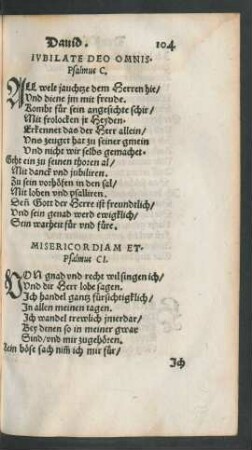 Dauid. 104
IVBILATE DEO OMNIS.
Psalmus C.
ALL welt jauchtze dem Herren hie/
Vnd diene jm mit freude.
Kombt für sein angesichte schir/
Mit frolocken jr Heyden.
Erkennet das der Herr allein/
Vns zeuget hat zu seiner gmein
Vnd nicht wir selbs gemachet.
Geht ein zu seinen thoren al/
Mit danck vnd jubiliren.
Zu sein vorhöfen in den sal/
Mit loben vnd psaliren.
Deñ Gott der Herre ist freundtlich/
Vnd sein genad werd ewigklich/
Sein warheit für vnd füre.
MISERICORDIAM ET-
Psalmus CI.
VON gnad vnd recht wil singen ich/
Vnd dir Herr lobe sagen.
Ich handel gantz fürsichtigklich/
In allen meinen tagen.
Ich wandel trewlich jmerdar/
Bey denen so in meiner gwar
Sind/vnd mir zugehören.
Kein böse sach nim̄ ich mir für/
Ich